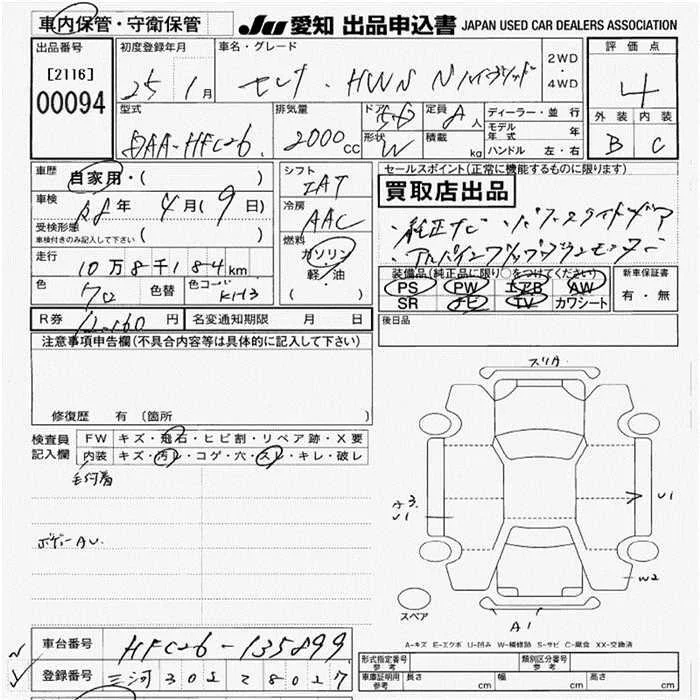 車内保管・守衛保管
JU 愛知 出品申込書 JAPAN USED CAR DEALERS ASSOCIATION
出品番号
[2116]
00094
初度登録年月
25 1月
車名・グレード
セレナ・HWS Nハイブリッド
2WD
・
4WD
評価点
4
外装 内装
B C
型式
DAA-HFC26
排気量
2000CC
ドア 5D
形状 W
定員 人
積載 kg
ディーラー・並行
モデル年式 年
ハンドル 左・右
車歴
自家用・( )
車検
R8年 4月(9日)
受検形態
車検付きのみ記入して下さい
( )
走行
10万8千184km
色
クロ
色替
色コード
KH3
シフト
IAT
冷房
AAC
燃料
ガソリン
軽・油
( )
セールスポイント(正常に機能するものに限ります)
買取店出品
・純正ナビ ・パワースライドドア
・アルパインフリップダウンモニター
装備品(純正品に限り○をつけてください)
PS PW エアB AW
SR ナビ TV カワシート
新車保証書
有・無
R券 12,160円
名変通知期限 月 日
後日品
注意事項申告欄(不具合内容等は具体的に記入して下さい)
修復歴 有 (箇所 )
検査員
記入欄
FW キズ・飛石・ヒビ割・リペア跡・X要
内装 キズ・汚レ・コゲ・穴・スレ・キレ・破レ
毛付着
ボディーAU
スリA
A3
U1
U1
W2
A1
スペア
A-キズ E-エクボ U-凹み W-補修跡 S-サビ C-腐食 XX-交換済
車台番号 HFC26-135899
登録番号 三河 302 2 8027
形式指定番号
参考
類別区分番号
参考
車庫証明用
参考
長さ cm 幅 cm 高さ cm